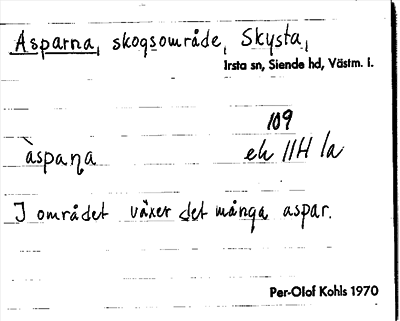 Asparna, skogsområde, Skysta,
Irsta sn, Siende hd, Västm. l.
109
àspaṇa ek 11H 1a
I området växer det många aspar.
Per-Olof Kohls 1970